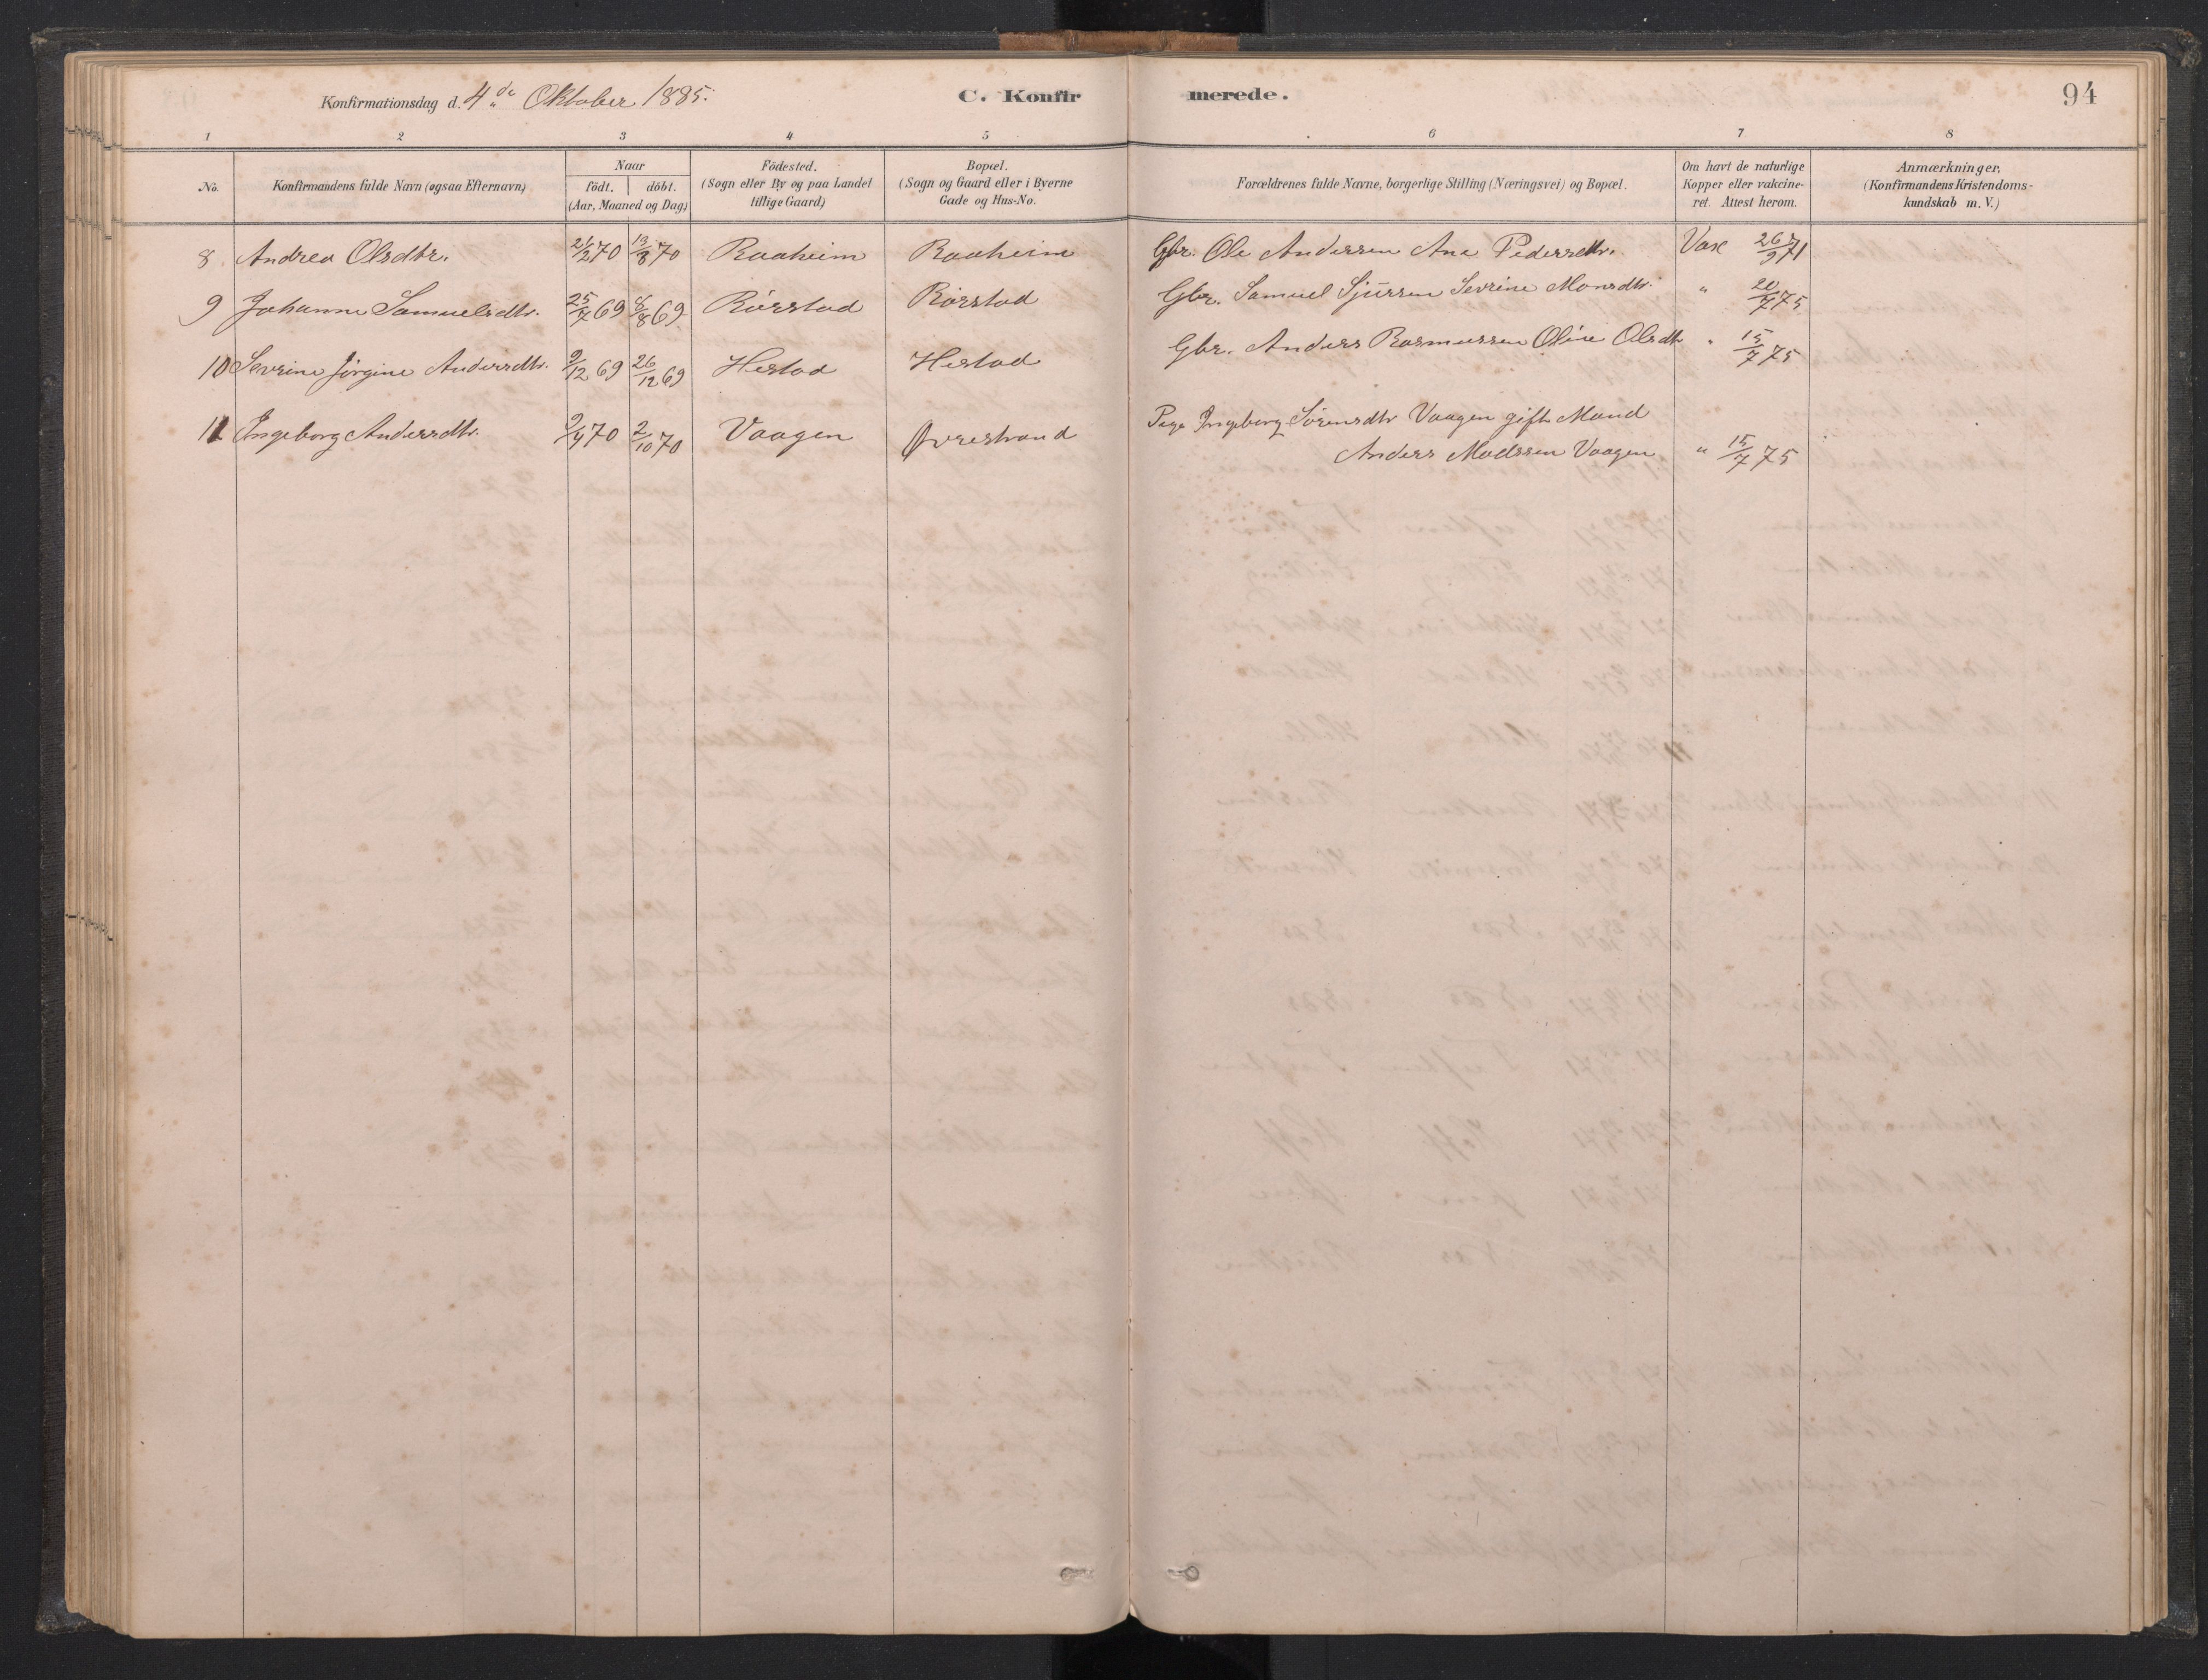 Konfirmationsdag d. 4de Oktober 1885. C. Konfirmerede. 94
1 2 3 4 5 6 7 8
No. Konfirmandens fulde Navn (ogsaa Efternavn) Naar födt. döbt. (Aar, Maaned og Dag) Födested. (Sogn eller By og paa Landet tillige Gaard) Bopæl. (Sogn og Gaard eller i Byerne Gade og Hus-No. Forældrenes fulde Navne, borgerlige Stilling (Næringsvei) og Bopæl. Om havt de naturlige Kopper eller vakcineret. Attest herom. Anmærkninger. (Konfirmandens Kristendomskundskab m. V.)
8 Andrea Olsdtr. 21/2 70 13/3 70 Raaheim Raaheim Gbr. Ole Anderssen Ane Pedersdtr. Vax 26/9 71
9 Johanne Samuelsdtr. 25/7 69 8/8 69 Rörstad Rörstad Gbr. Samuel Sjurssen Sevrine Monsdtr. " 20/7 75
10 Sevrine Jörgine Andersdtr. 9/12 69 26/12 69 Hestad Hestad Gbr. Anders Rasmussen Oline Olsdtr " 15/7 75
11 Ingeborg Andersdtr. 9/4 70 2/10 70 Vaagen Øvrestrand Pige Ingeborg Sörensdtr Vaagen gift Mand
Anders Madssen Vaagen " 15/7 75